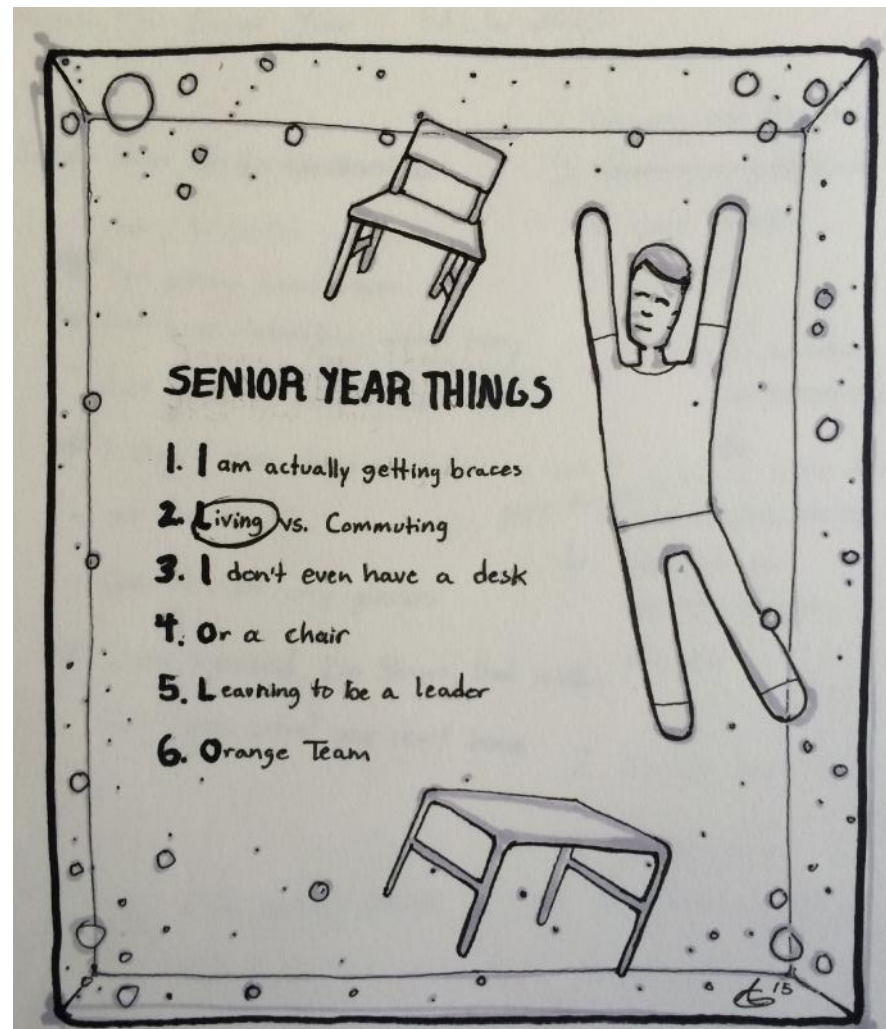 SENIOR YEAR THINGS
1. I am actually getting braces
2. Living vs. Commuting
3. I don't even have a desk
4. Or a chair
5. Learning to be a leader
6. Orange Team
'15